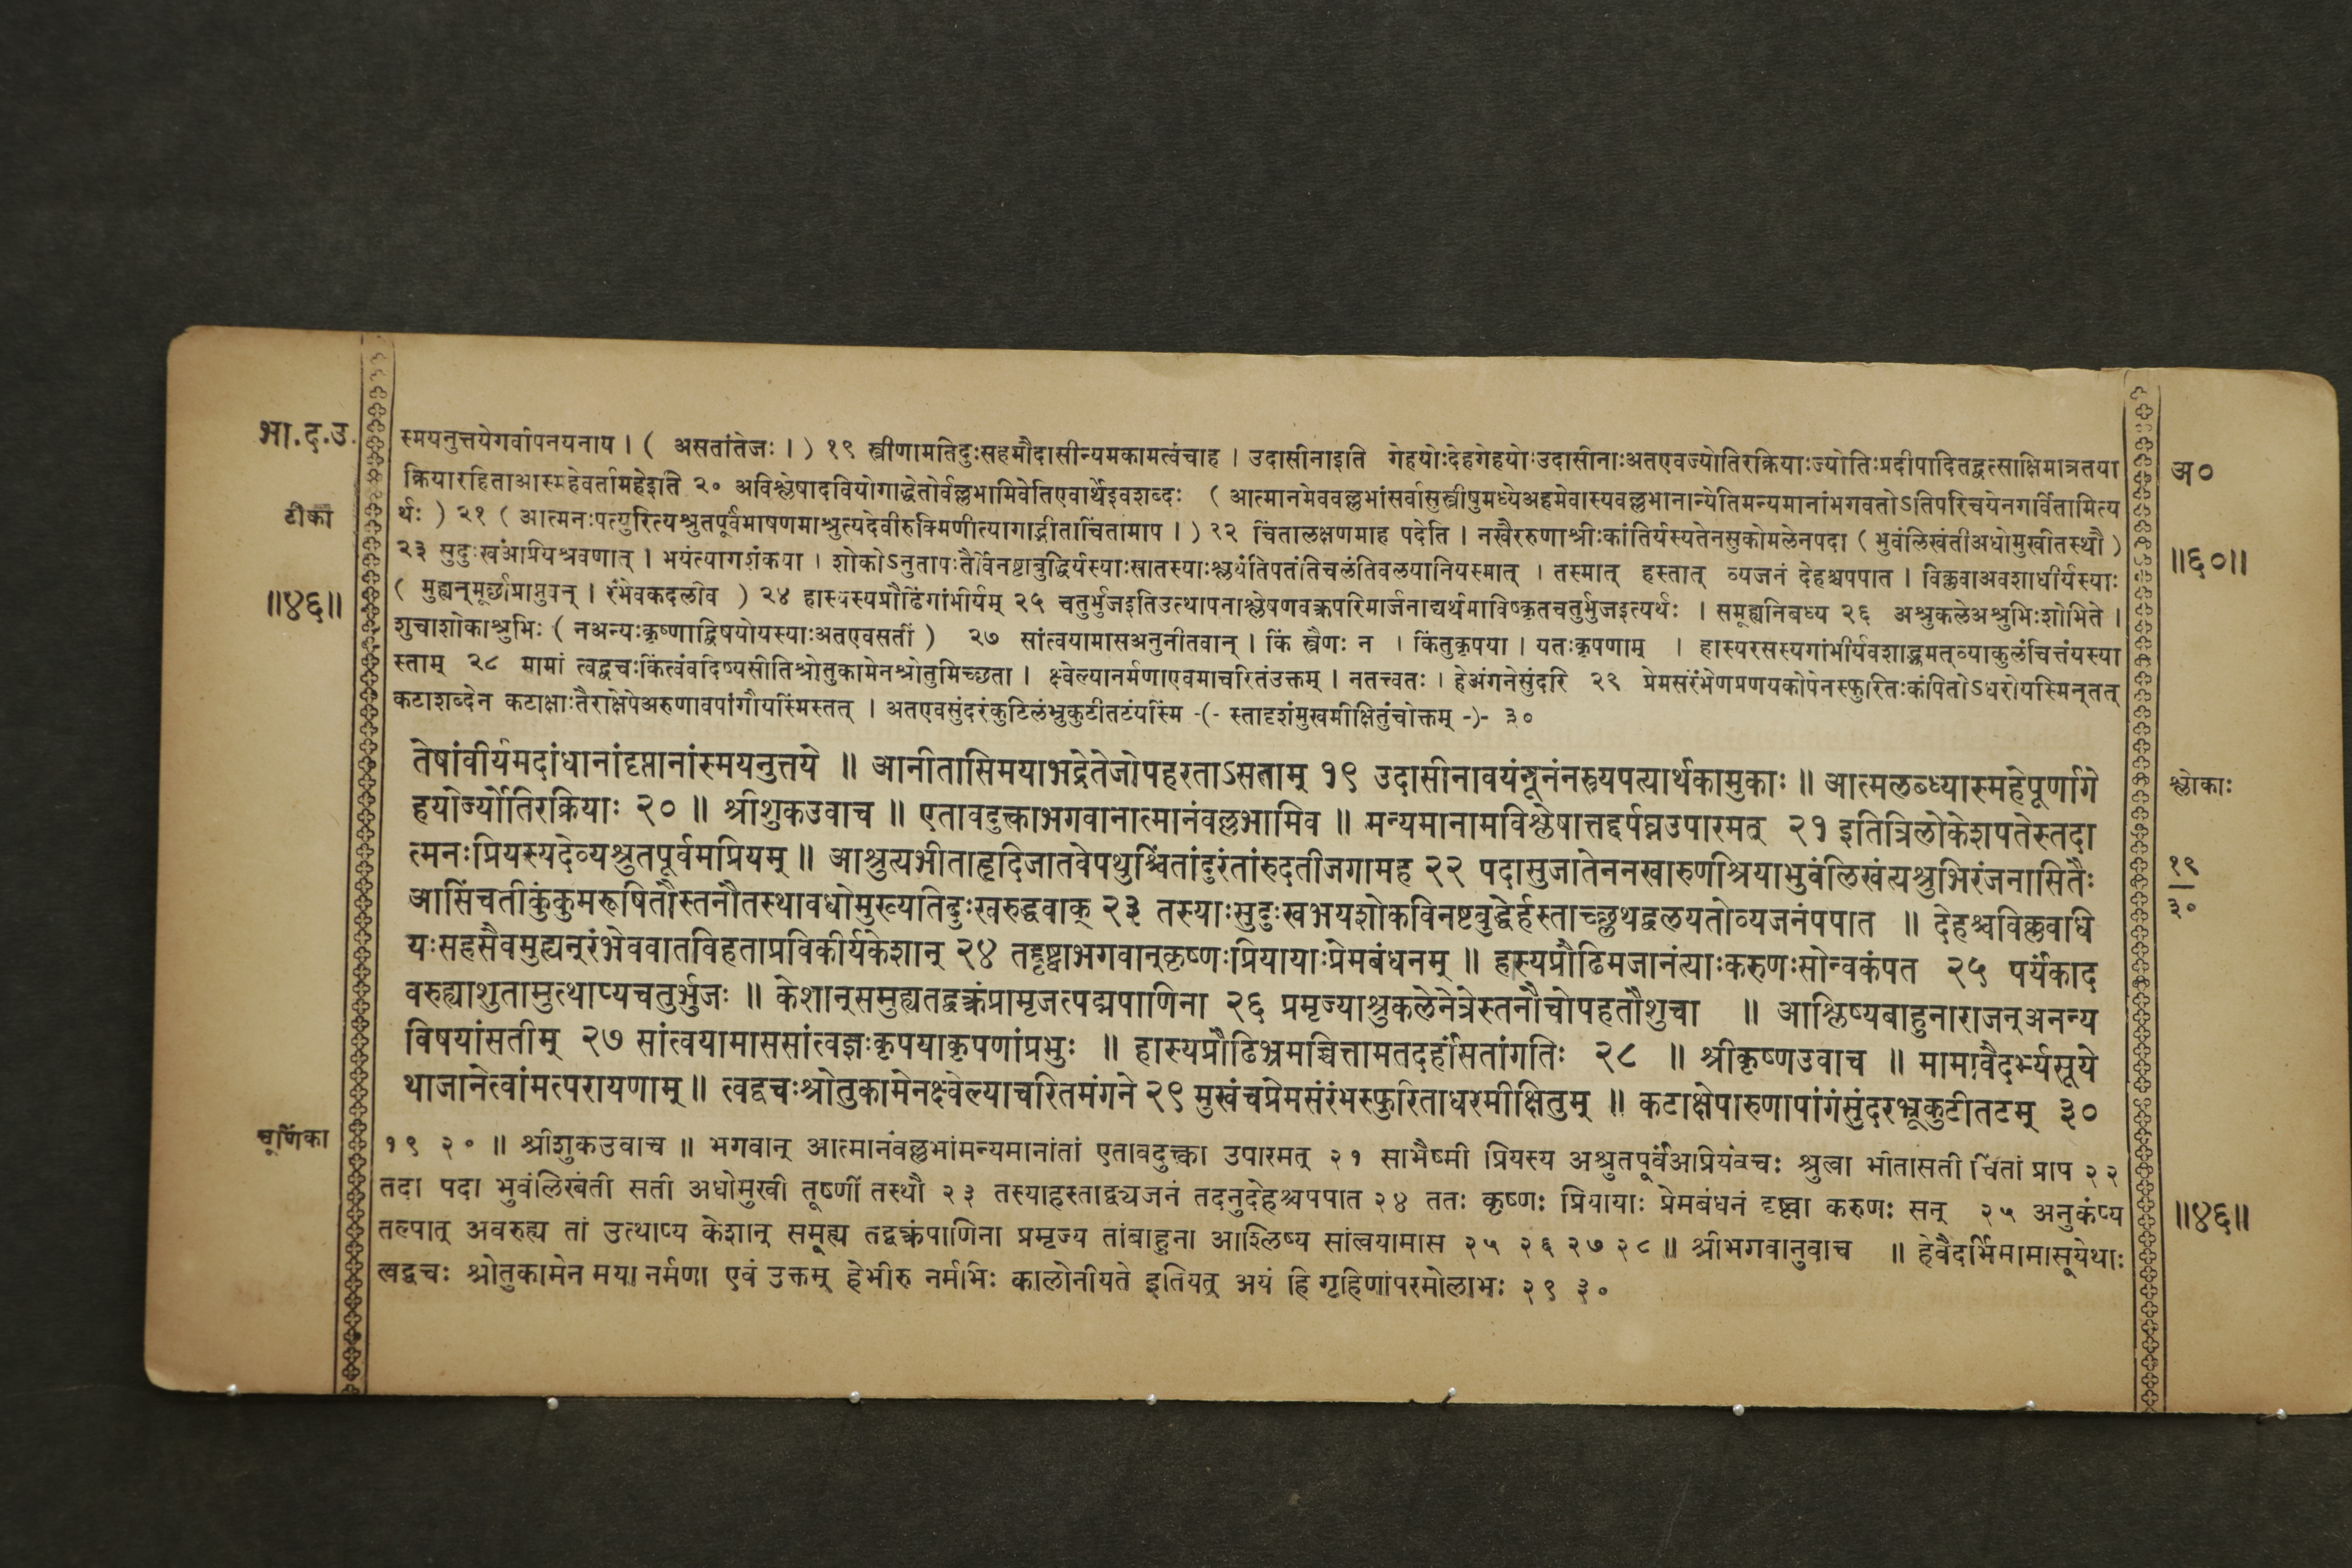 भा.द.उ.
टीका
॥४६॥
स्मयनुत्तयेगर्वापनयनाय । ( असतांतेजः । ) १९ स्त्रीणामतिदुःसहमौदासीन्यमकामत्वंचाह । उदासीनाइति गेहयोःदेहगेहयोःउदासीनाःअतएवज्योतिरक्रियाःज्योतिःप्रदीपादितद्वत्साक्षिमात्रतया
क्रियारहिताआस्महेवर्तामहेइति २० अविश्लेषादवियोगाद्धेतोर्वल्लभामिवेतिएवार्थेइवशब्दः ( आत्मानमेववल्लभांसर्वासुस्त्रीषुमध्येअहमेवास्यवल्लभानान्येतिमन्यमानांभगवतोऽतिपरिचयेनगर्वितामित्य
र्थः ) २१ ( आत्मनःपत्युरित्यश्रुतपूर्वंभाषणमाश्रुत्यदेवीरुक्मिणीत्यागाद्भीताचिंतामाप । ) २२ चिंतालक्षणमाह पदेति । नखैररुणाश्रीःकांतिर्यस्यतेनसुकोमलेनपदा ( भुवंलिखंतीअधोमुखीतस्थौ )
२३ सुदुःखंअप्रियश्रवणात् । भयंत्यागशंकया । शोकोऽनुतापःतैर्विनष्टाबुद्धिर्यस्याःसातस्याःश्लथंतिपतंतिचलंतिवलयानियस्मात् । तस्मात् हस्तात् व्यजनं देहश्चपपात । विक्लवाअवशाधीर्यस्याः
( मुह्यन्मूर्छांप्राप्नुवन् । रंभेवकदलीव ) २४ हास्यस्यप्रौढिंगांभीर्यम् २५ चतुर्भुजइतिउत्थापनाश्लेषणवक्रपरिमार्जनाद्यर्थमाविष्कृतचतुर्भुजइत्यर्थः । समूह्यनिबध्य २६ अश्रुकलेअश्रुभिःशोभिते ।
शुचाशोकाश्रुभिः ( नअन्यःकृष्णाद्विषयोयस्याःअतएवसतीं ) २७ सांत्वयामासअनुनीतवान् । किं स्त्रैणः न । किंतुकृपया । यतःकृपणाम् । हास्यरसस्यगांभीर्यवशाद्भ्रमत्व्याकुलंचित्तंयस्या
स्ताम् २८ मामां त्वद्वचःकिंत्वंवदिष्यसीतिश्रोतुकामेनश्रोतुमिच्छता । क्ष्वेल्यानर्मणाएवमाचरितंउक्तम् । नतत्त्वतः । हेअंगनेसुंदरि २९ प्रेमसंरंभेणप्रणयकोपेनस्फुरितःकंपितोऽधरोयस्मिन्तत्
कटाशब्देन कटाक्षाःतैराक्षेपेअरुणावपांगौयस्मिंस्तत् । अतएवसुंदरंकुटिलंभ्रुकुटीतटंयस्मिं -(- स्तादृशंमुखमीक्षितुंचोक्तम् -)- ३०
तेषांवीर्यमदांधानांदृप्तानांस्मयनुत्तये ॥ आनीतासिमयाभद्रेतेजोपहरताऽसताम् १९ उदासीनावयंनूनंनस्त्र्यपत्यार्थकामुकाः ॥ आत्मलब्ध्यास्महेपूर्णागे
हयोर्ज्योतिरक्रियाः २० ॥ श्रीशुकउवाच ॥ एतावदुक्त्वाभगवानात्मानंवल्लभामिव ॥ मन्यमानामविश्लेषात्तद्दर्पघ्नउपारमत् २१ इतित्रिलोकेशपतेस्तदा
त्मनःप्रियस्यदेव्यश्रुतपूर्वमप्रियम् ॥ आश्रुत्यभीताहृदिजातवेपथुश्चिंतांदुरंतांरुदतीजगामह २२ पदासुजातेननखारुणश्रियाभुवंलिखंत्यश्रुभिरंजनासितैः
आसिंचतीकुंकुमरूषितौस्तनौतस्थावधोमुख्यतिदुःखरुद्धवाक् २३ तस्याःसुदुःखभयशोकविनष्टबुद्धेर्हस्ताच्छ्लथद्वलयतोव्यजनंपपात ॥ देहश्चविक्लवाधि
यःसहसैवमुह्यन्रंभेववातविहताप्रविकीर्यकेशान् २४ तद्दृष्ट्वाभगवान्कृष्णःप्रियायाःप्रेमबंधनम् ॥ हास्यप्रौढिमजानंत्याःकरुणःसोन्वकंपत २५ पर्यंकाद
वरुह्याशुतामुत्थाप्यचतुर्भुजः ॥ केशान्समुह्यतद्वक्त्रंप्रामृजत्पद्मपाणिना २६ प्रमृज्याश्रुकलेनेत्रेस्तनौचोपहतौशुचा ॥ आश्लिष्यबाहुनाराजन्अनन्य
विषयांसतीम् २७ सांत्वयामाससांत्वज्ञःकृपयाकृपणांप्रभुः ॥ हास्यप्रौढिभ्रमच्चित्तामतदर्हांसतांगतिः २८ ॥ श्रीकृष्णउवाच ॥ मामावैदर्भ्यसूये
थाजानेत्वांमत्परायणाम् ॥ त्वद्वचःश्रोतुकामेनक्ष्वेल्याचरितमंगने २९ मुखंचप्रेमसंरंभस्फुरिताधरमीक्षितुम् ॥ कटाक्षेपारुणापांगंसुंदरभ्रूकुटीतटम् ३०
चूर्णिका
१९ २० ॥ श्रीशुकउवाच ॥ भगवान् आत्मानंवल्लभांमन्यमानांतां एतावदुक्त्वा उपारमत् २१ साभैष्मी प्रियस्य अश्रुतपूर्वंअप्रियंवचः श्रुत्वा भीतासती चिंतां प्राप २२
तदा पदा भुवंलिखंती सती अधोमुखी तूष्णीं तस्थौ २३ तस्याहस्ताद्व्यजनं तदनुदेहश्चपपात २४ ततः कृष्णः प्रियायाः प्रेमबंधनं दृष्ट्वा करुणः सन् २५ अनुकंप्य
तल्पात् अवरुह्य तां उत्थाप्य केशान् समूह्य तद्वक्त्रंपाणिना प्रमृज्य तांबाहुना आश्लिष्य सांत्वयामास २५ २६ २७ २८ ॥ श्रीभगवानुवाच ॥ हेवैदर्भिमामासूयेथाः
त्वद्वचः श्रोतुकामेन मया नर्मणा एवं उक्तम् हेभीरु नर्मभिः कालोनीयते इतियत् अयं हि गृहिणांपरमोलाभः २९ ३०
अ०
॥६०॥
श्लोकाः
१९
३०
॥४६॥